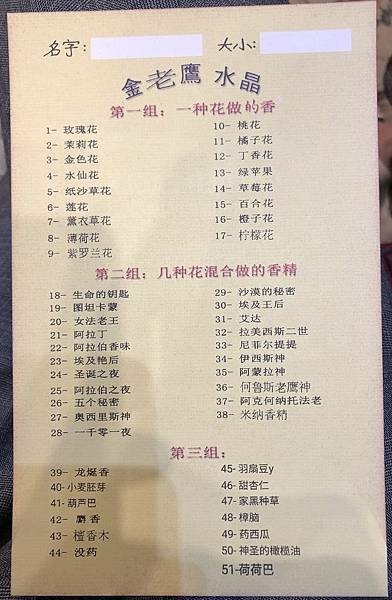 名字：
大小：
金老鹰 水晶
第一组：一种花做的香
1- 玫瑰花
2- 茉莉花
3- 金色花
4- 水仙花
5- 纸沙草花
6- 莲花
7- 薰衣草花
8- 薄荷花
9- 紫罗兰花
10- 桃花
11- 橘子花
12- 丁香花
13- 绿苹果
14- 草莓花
15- 百合花
16- 橙子花
17- 柠檬花
第二组：几种花混合做的香精
18- 生命的钥匙
19- 图坦卡蒙
20- 女法老王
21- 阿拉丁
22- 阿拉伯香味
23- 埃及艳后
24- 圣诞之夜
25- 阿拉伯之夜
26- 五个秘密
27- 奥西里斯神
28- 一千零一夜
29- 沙漠的秘密
30- 埃及王后
31- 艾达
32- 拉美西斯二世
33- 尼菲尔提提
34- 伊西斯神
35- 阿蒙拉神
36- 何鲁斯老鹰神
37- 阿克何纳托法老
38- 米纳香精
第三组：
39- 龙涎香
40- 小麦胚芽
41- 葫芦巴
42- 麝香
43- 檀香木
44- 没药
45- 羽扇豆y
46- 甜杏仁
47- 家黑种草
48- 樟脑
49- 药西瓜
50- 神圣的橄榄油
51-荷荷巴